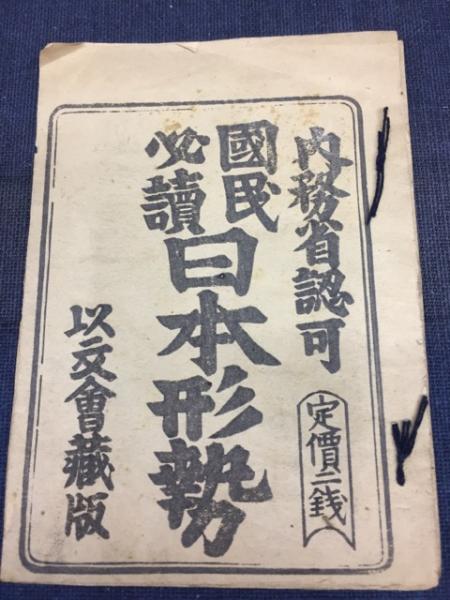 内務省認可
國民必讀
日本形勢
定價二銭
以文會藏版